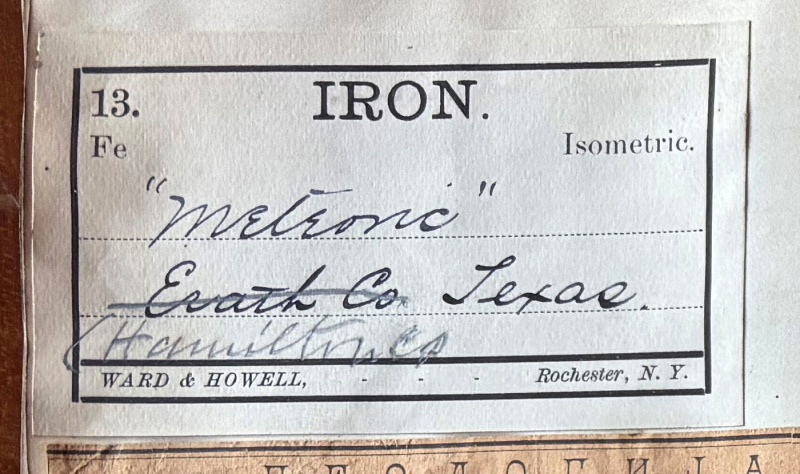 13. IRON.
Fe Isometric.
"Meteoric"
Erath Co Texas.
(Hamilton Co
WARD & HOWELL, - - - Rochester, N. Y.